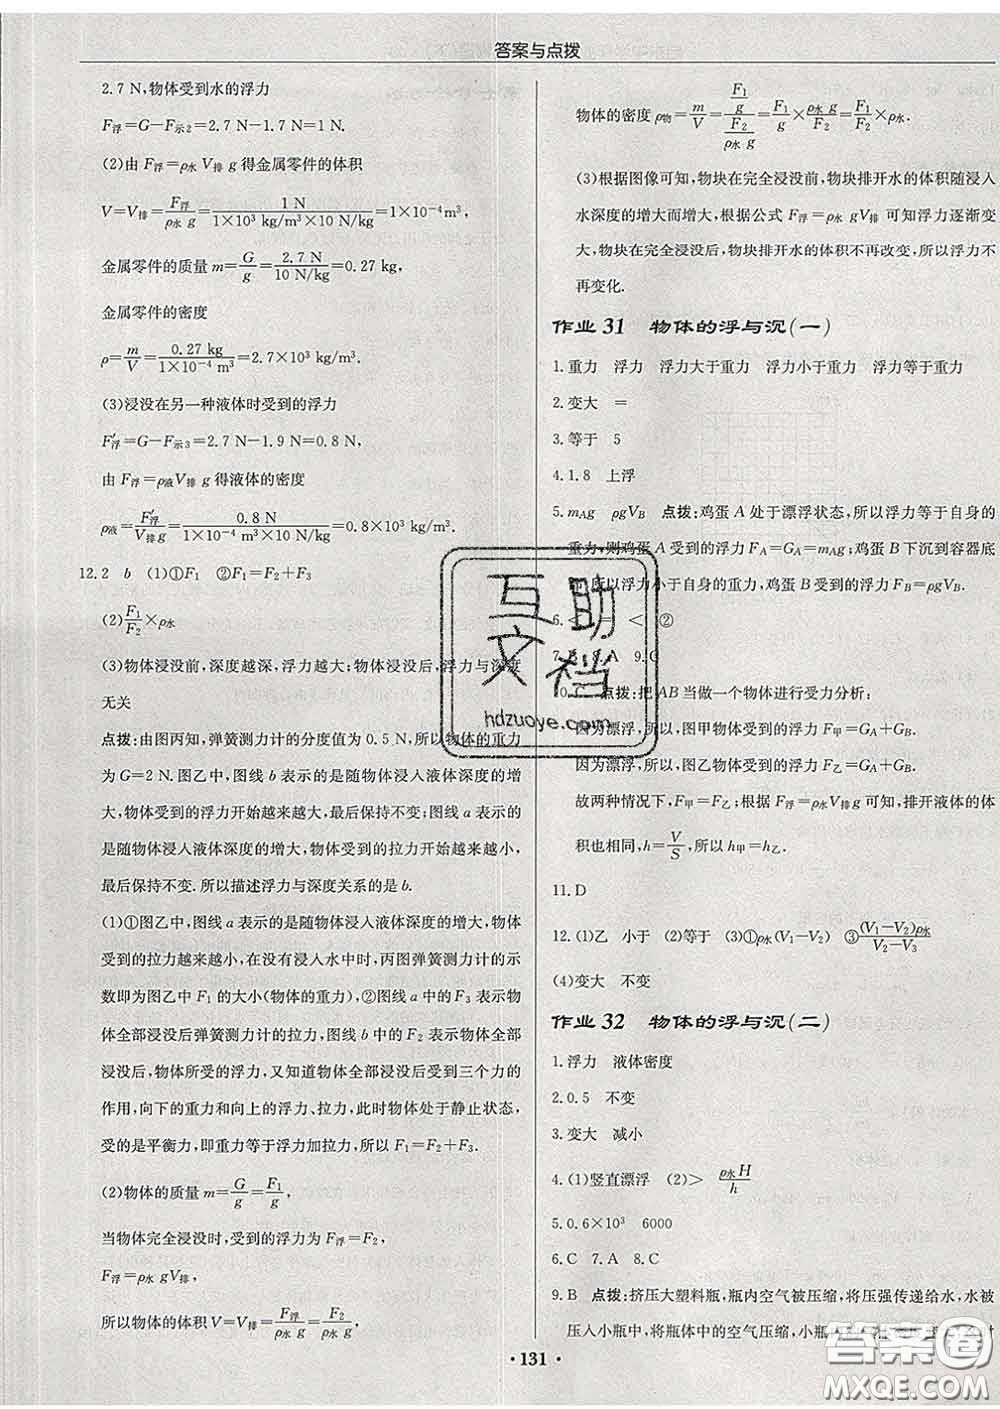 答案与点拨
2.7 N,物体受到水的浮力
F浮=G-F示2=2.7 N-1.7 N=1 N.
(2)由 F浮=ρ水 V排 g 得金属零件的体积
V=V排=F浮/(ρ水 g)=1 N/(1×10³ kg/m³×10 N/kg)=1×10⁻⁴m³,
金属零件的质量 m=G/g=2.7 N/(10 N/kg)=0.27 kg,
金属零件的密度
ρ=m/V=0.27 kg/(1×10⁻⁴ m³)=2.7×10³ kg/m³.
(3)浸没在另一种液体时受到的浮力
F′浮=G-F示3=2.7 N-1.9 N=0.8 N,
由 F浮=ρ液V排 g 得液体的密度
ρ液=F′浮/(V排 g)=0.8 N/(1×10⁻⁴ m³×10 N/kg)=0.8×10³ kg/m³.
12.2 b (1)①F₁ ②F₁=F₂+F₃
(2)F₁/F₂×ρ水
(3)物体浸没前,深度越深,浮力越大;物体浸没后,浮力与深度
无关
点拨:由图丙知,弹簧测力计的分度值为 0.5 N,所以物体的重力
为 G=2 N.图乙中,图线 b 表示的是随物体浸入液体深度的增
大,物体受到的浮力开始越来越大,最后保持不变;图线 a 表示的
是随物体浸入液体深度的增大,物体受到的拉力开始越来越小,
最后保持不变.所以描述浮力与深度关系的是 b.
(1)①图乙中,图线 a 表示的是随物体浸入液体深度的增大,物体
受到的拉力越来越小,在没有浸入水中时,丙图弹簧测力计的示
数即为图乙中 F₁ 的大小(物体的重力),②图线 a 中的 F₃ 表示物
体全部浸没后弹簧测力计的拉力,图线 b 中的 F₂ 表示物体全部
浸没后,物体所受的浮力,又知道物体全部浸没后受到三个力的
作用,向下的重力和向上的浮力、拉力,此时物体处于静止状态,
受的是平衡力,即重力等于浮力加拉力,所以 F₁=F₂+F₃.
(2)物体的质量 m=G/g=F₁/g,
当物体完全浸没时,受到的浮力为 F浮=F₂,
F浮=ρ水 gV排,
所以物体的体积 V=V排=F浮/(ρ水 g)=F₂/(ρ水 g),
物体的密度 ρ物=m/V=(F₁/g)/(F₂/(ρ水 g))=F₁/g×ρ水 g/F₂=F₁/F₂×ρ水.
(3)根据图像可知,物块在完全浸没前,物块排开水的体积随浸入
水深度的增大而增大,根据公式 F浮=ρ水 gV排 可知浮力逐渐变
大,物块在完全浸没后,物块排开水的体积不再改变,所以浮力不
再变化.
作业 31 物体的浮与沉(一)
1.重力 浮力 浮力大于重力 浮力小于重力 浮力等于重力
2.变大 =
3.等于 5
4.1.8 上浮
5.mAg ρgVB 点拨:鸡蛋 A 处于漂浮状态,所以浮力等于自身的
重力,则鸡蛋 A 受到的浮力 FA=GA=mAg;鸡蛋 B 下沉到容器底
所以浮力小于自身的重力,鸡蛋 B 受到的浮力 FB=ρgVB.
6.< = < ②
7.B 8.A 9.C
10.C 点拨:把 AB 当做一个物体进行受力分析;
因为漂浮,所以,图甲物体受到的浮力 F甲=GA+GB.
因为漂浮,所以,图乙物体受到的浮力 F乙=GA+GB.
故两种情况下,F甲=F乙;根据 F浮=ρ水V排g 可知,排开液体的体
积也相同,h=V/S,所以 h甲=h乙.
11.D
12.(1)乙 小于 (2)等于 (3)①ρ水(V₁-V₂) ③(V₁-V₂)ρ水/(V₂-V₃)
(4)变大 不变
作业 32 物体的浮与沉(二)
1.浮力 液体密度
2.0.5 不变
3.变大 减小
4.(1)竖直漂浮 (2)> ρ水H/h
5.0.6×10³ 6000
6.C 7.A 8.C
9.B 点拨:挤压大塑料瓶,瓶内空气被压缩,将压强传递给水,水被
压入小瓶中,将瓶体中的空气压缩,小瓶
· 131 ·
互助文档
hdzuoye.com
答案圈
MXQE.COM